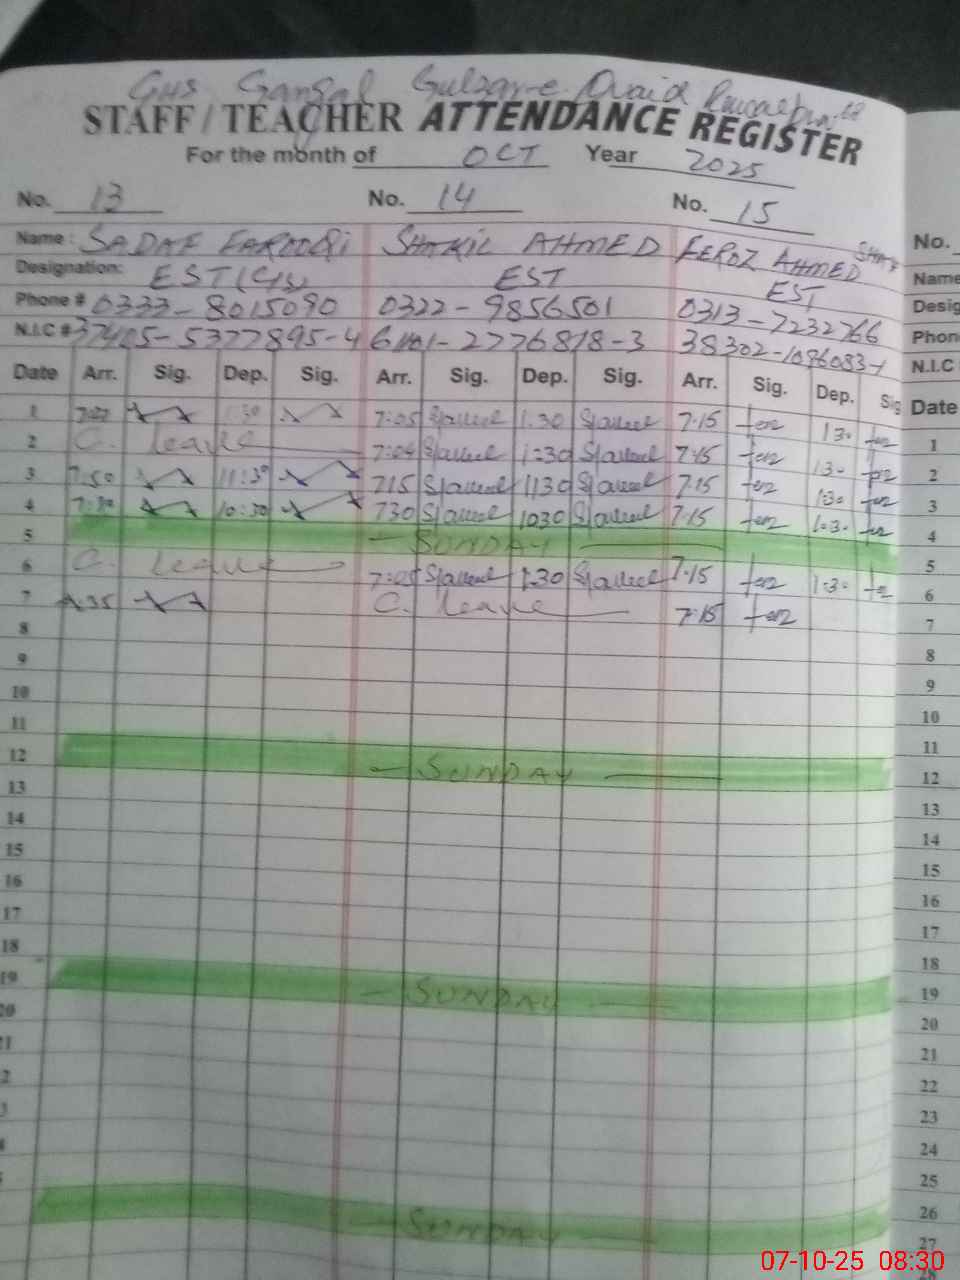 GHS Gangal Gulzar-e-Quaid Rawalpindi
STAFF/TEACHER ATTENDANCE REGISTER
For the month of OCT Year 2025
No. 13 No. 14 No. 15 No.
Name: SADAF FAROOQI SHAKIL AHMED FEROZ AHMED Name
Designation: EST EST EST Desig
Phone # 0333-8015090 0322-9856501 0313-7232766 Phon
N.I.C # 37405-5377895-4 61101-2776818-3 38302-1086083-1 N.I.C
Date Arr. Sig. Dep. Sig. Arr. Sig. Dep. Sig. Arr. Sig. Dep. Sig Date
1 7:05 Shakeel 1:30 Shakeel 7:15 1:30 1
2 C. leave 7:05 Shakeel 1:30 Shakeel 7:15 1:30 2
3 7:50 11:30 7:15 Shakeel 1130 Shakeel 7:15 1:30 3
4 7:30 10:30 730 Shakeel 1030 Shakeel 7:15 10:30 4
5 — SUNDAY — 5
6 C. leave 7:05 Shakeel 1:30 Shakeel 7:15 1:30 6
7 C. leave 7:15 7
8 8
9 9
10 10
11 11
12 — SUNDAY — 12
13 13
14 14
15 15
16 16
17 17
18 18
19 — SUNDAY — 19
20 20
21
22
23
24
25
— SUNDAY — 26
27
07-10-25 08:30